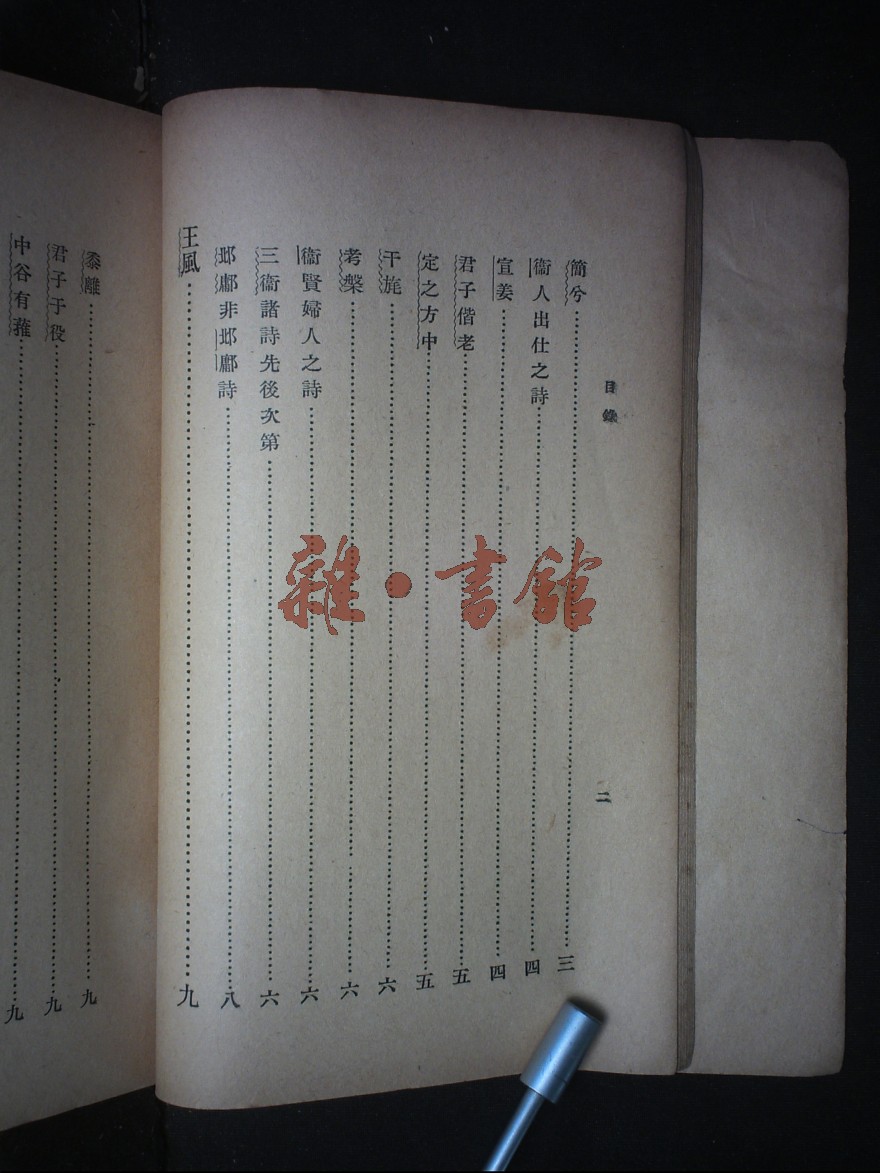 目錄
二
簡兮……三
衞人出仕之詩……四
宣姜……四
君子偕老……五
定之方中……五
干旄……六
考槃……六
衞賢婦人之詩……六
三衞諸詩先後次第……六
邶鄘非邶鄘詩……八
王風……九
黍離……九
君子于役……九
中谷有蓷……九
雜·書館